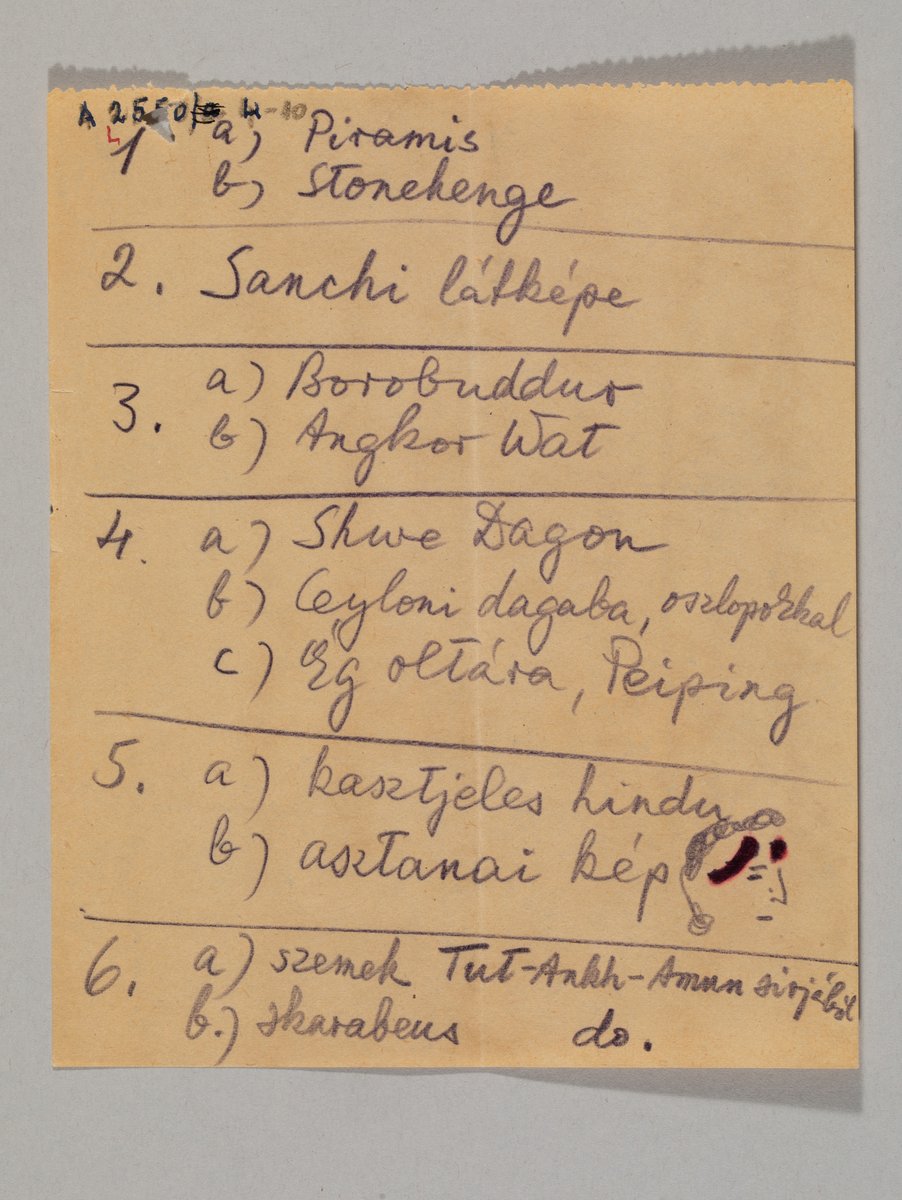 A 2550 4-10
1 a) Piramis
b) Stonehenge
2. Sanchi látképe
3. a) Borobuddur
b) Angkor Wat
4. a) Shwe Dagon
b) Ceyloni dagaba, oszlopokkal
c) Ég oltára, Peiping
5. a) kasztjeles hindu
b) asztanai kép
6. a) szemek Tut-Ankh-Amun sirjából
b.) skarabeus do.